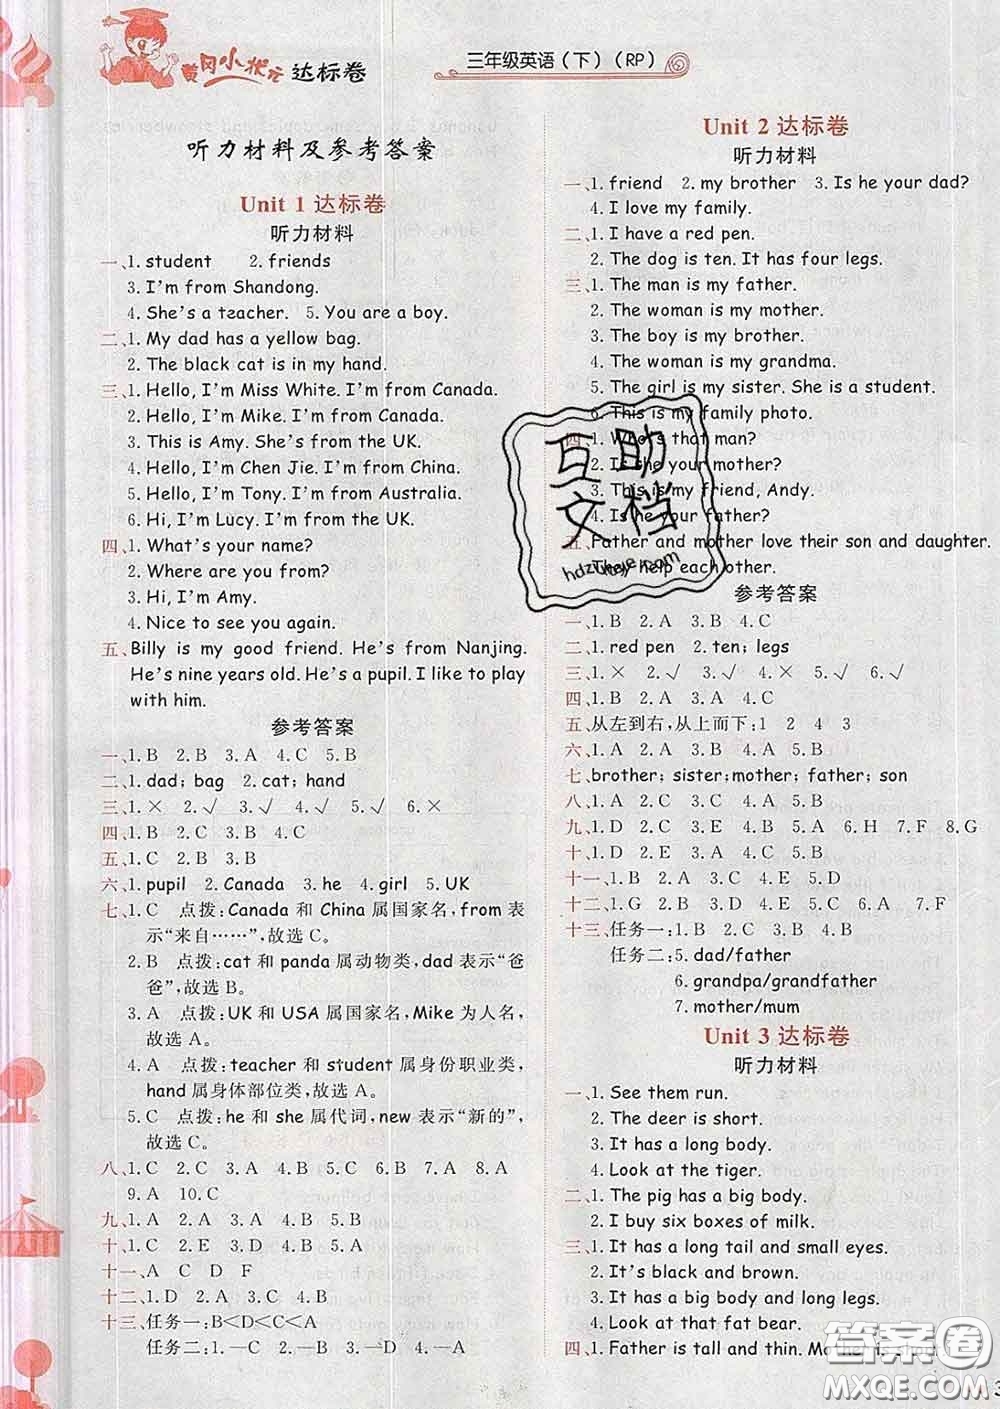 黄冈小状元达标卷
三年级英语（下）（RP）
听力材料及参考答案
Unit 1 达标卷
听力材料
一、1. student 2. friends
3. I'm from Shandong.
4. She's a teacher. 5. You are a boy.
二、1. My dad has a yellow bag.
2. The black cat is in my hand.
三、1. Hello, I'm Miss White. I'm from Canada.
2. Hello, I'm Mike. I'm from Canada.
3. This is Amy. She's from the UK.
4. Hello, I'm Chen Jie. I'm from China.
5. Hello, I'm Tony. I'm from Australia.
6. Hi, I'm Lucy. I'm from the UK.
四、1. What's your name?
2. Where are you from?
3. Hi, I'm Amy.
4. Nice to see you again.
五、Billy is my good friend. He's from Nanjing.
He's nine years old. He's a pupil. I like to play
with him.
参考答案
一、1. B 2. B 3. A 4. C 5. B
二、1. dad; bag 2. cat; hand
三、1. × 2. √ 3. √ 4. √ 5. √ 6. ×
四、1. B 2. C 3. B 4. C
五、1. C 2. B 3. A 4. B 5. C
六、1. pupil 2. Canada 3. he 4. girl 5. UK
七、1. C 点拨：Canada 和 China 属国家名，from 表
示“来自……”，故选 C。
2. B 点拨：cat 和 panda 属动物类，dad 表示“爸
爸”，故选 B。
3. A 点拨：UK 和 USA 属国家名，Mike 为人名，
故选 A。
4. A 点拨：teacher 和 student 属身份职业类，
hand 属身体部位类，故选 A。
5. C 点拨：he 和 she 属代词，new 表示“新的”，
故选 C。
八、1. C 2. C 3. A 4. B 5. C 6. B 7. A 8. A
9. A 10. C
九、1. A 2. A 3. A 4. B 5. B
十、1. C 2. E 3. D 4. B 5. A
十一、A C D F
十二、1. D 2. A 3. C 4. B
十三、任务一：B＜D＜C＜A
任务二：1. —C 2. —B 3. —D 4. —A
Unit 2 达标卷
听力材料
一、1. friend 2. my brother 3. Is he your dad?
4. I love my family.
二、1. I have a red pen.
2. The dog is ten. It has four legs.
三、1. The man is my father.
2. The woman is my mother.
3. The boy is my brother.
4. The woman is my grandma.
5. The girl is my sister. She is a student.
6. This is my family photo.
四、1. Who's that man?
2. Is she your mother?
3. This is my friend, Andy.
4. Is he your father?
五、Father and mother love their son and daughter.
They help each other.
参考答案
一、1. B 2. A 3. B 4. C
二、1. red pen 2. ten; legs
三、1. × 2. √ 3. √ 4. × 5. √ 6. √
四、1. B 2. C 3. A 4. C
五、从左到右，从上而下：1 2 4 3
六、1. A 2. A 3. B 4. C 5. B
七、brother; sister; mother; father; son
八、1. A 2. C 3. B 4. B 5. B
九、1. D 2. C 3. E 4. B 5. A 6. H 7. F 8. G
十、1. D 2. E 3. A 4. B 5. C
十一、1. B 2. A 3. C 4. E 5. D
十二、1. G 2. B 3. D 4. E 5. C 6. A 7. F
十三、任务一：1. B 2. C 3. B 4. B
任务二：5. dad/father
6. grandpa/grandfather
7. mother/mum
Unit 3 达标卷
听力材料
一、1. See them run.
2. The deer is short.
3. It has a long body.
4. Look at the tiger.
二、1. The pig has a big body.
2. I buy six boxes of milk.
三、1. It has a long tail and small eyes.
2. It's black and brown.
3. It has a big body and long legs.
4. Look at that fat bear.
四、1. Father is tall and thin. Mother is
互助文档
答案圈
MXQE.COM
3